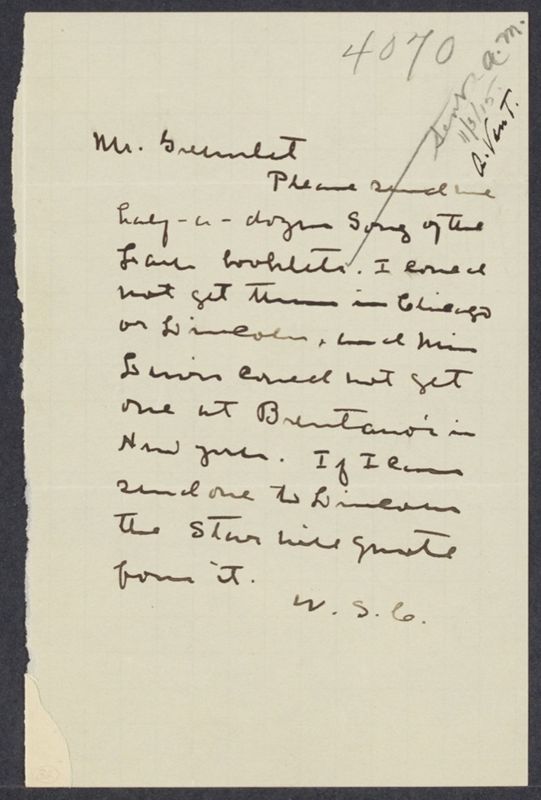 4070
Sent
11/3/15.
a.m.
A. Van T.
Mr. Greenslet
Please send me
half-a-dozen Song of the
Lark booklets. I could
not get them in Chicago
or Lincoln, and Miss
Lewis could not get
one at Brentano's in
New York. If I can
send one to Lincoln
the Star will quote
from it.
W. S. C.